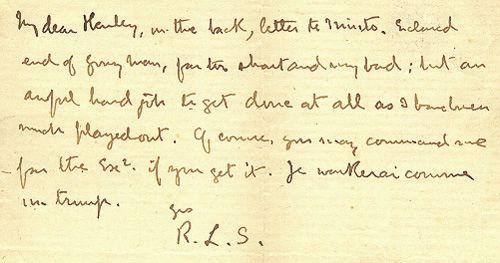 My dear Henley, on the back, letter to Minto. Enclosed
end of young man, far too short and very bad; but an
awful hard job to get done at all as I have been
much played out. Of course, you may command me
– for the Exr. if you get it. Je workerai comme
un trump.
yrs
R. L. S.